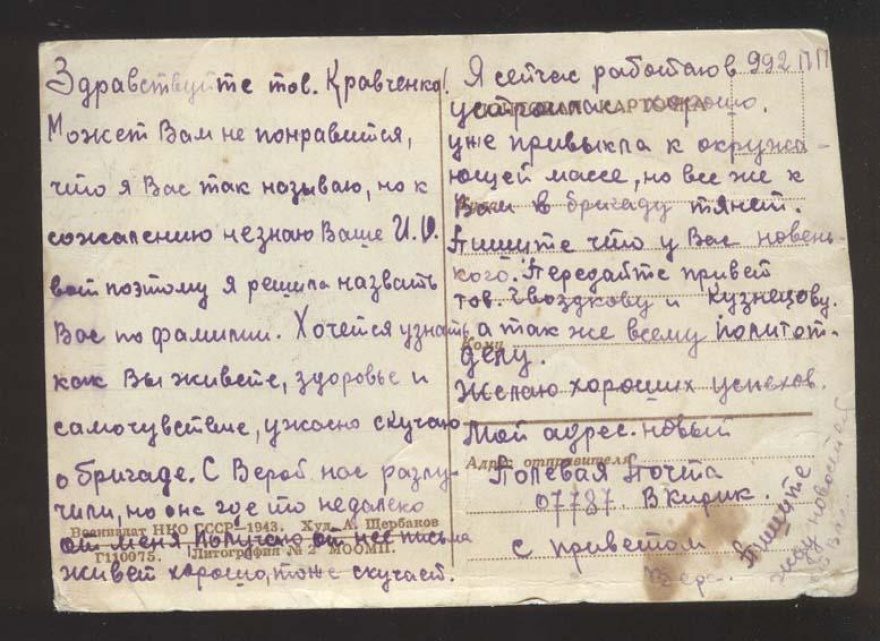 Здравствуйте тов. Кравченко!
Может Вам не понравится,
что я Вас так называю, но к
сожалению незнаю Ваше И.О.
вот поэтому я решила назвать
Вас по фамилии. Хочется узнать
как Вы живете, здоровье и
самочувствие, ужасно скучаю
о бригаде. С Верой нас разлу-
чили, но она где то недалеко
Воениздат НКО СССР–1943. Худ. А. Щербаков
от меня Получаю от нее письма
Г110075. Литография № 2 МООМП.
живет хорошо, тоже скучает.
Я сейчас работаю в 992 ПП
КАРТОЧКА
устроилась хорошо.
уже привыкла к окружа-
ющей массе, но все же к
Куда
Вам в бригаду тянет.
Пишите что у Вас новень-
кого. Передайте привет
тов. Гвоздкову и Кузнецову.
а так же всему политот-
Кому
делу.
Желаю хороших успехов.
Мой адрес. новый
Адрес отправителя
Полевая Почта
07787. В Кирик.
с приветом
Пишите
жду новостей